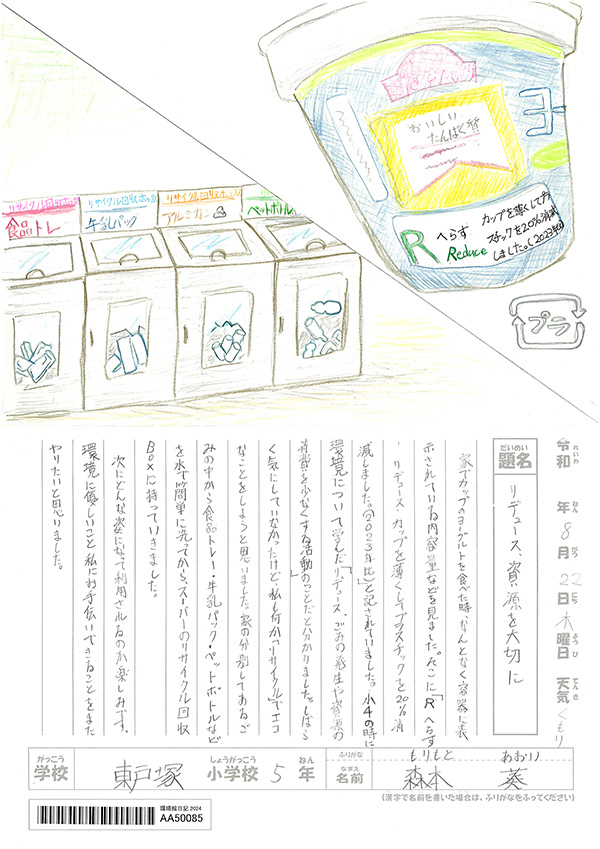 おいしい
たんぱく質
R
へらす
Reduce
カップを薄くしてプラ
スチックを20%消減
しました。(2023年比)
プラ
リサイクル回収ボックス
食品トレー
リサイクル回収ボックス
牛乳パック
リサイクル回収ボックス
アルミカン
ペットボトル
令和 年 8月 22日 木曜日 天気 くもり
れいわ ねん がつ にち ようび てんき
だいめい
題名
リデュース、資源を大切に
家でカップのヨーグルトを食べた時、なんとなく容器に表
示されている内容量などを見ました。そこに「R へらす
・リデュース・カップを薄くしてプラスチックを20%消
減しました。(2023年比)」と記されていました。小4の時に
環境について学んだ「リデュース、ごみの発生や資源の
消費を少なくする活動」のことだと分かりました。しばら
く気にしていなかったけど、私も何か「リサイクル」でエコ
なことをしようと思いました。家の分別してあるご
みの中から食品トレー・牛乳パック・ペットボトルなど
を水で簡単に洗ってから、スーパーのリサイクル回収
Boxに持っていきました。
次にどんな姿になって利用されるのか楽しみです。
環境に優しいこと、私にお手伝いできることをまた
やりたいと思いました。
がっこう
学校
東戸塚
しょうがっこう
小学校
5
ねん
年
ふりがな
なまえ
名前
もりもと あおり
森本 葵
(漢字で名前を書いた場合は、ふりがなをふってください)
環境絵日記 2024
AA50085